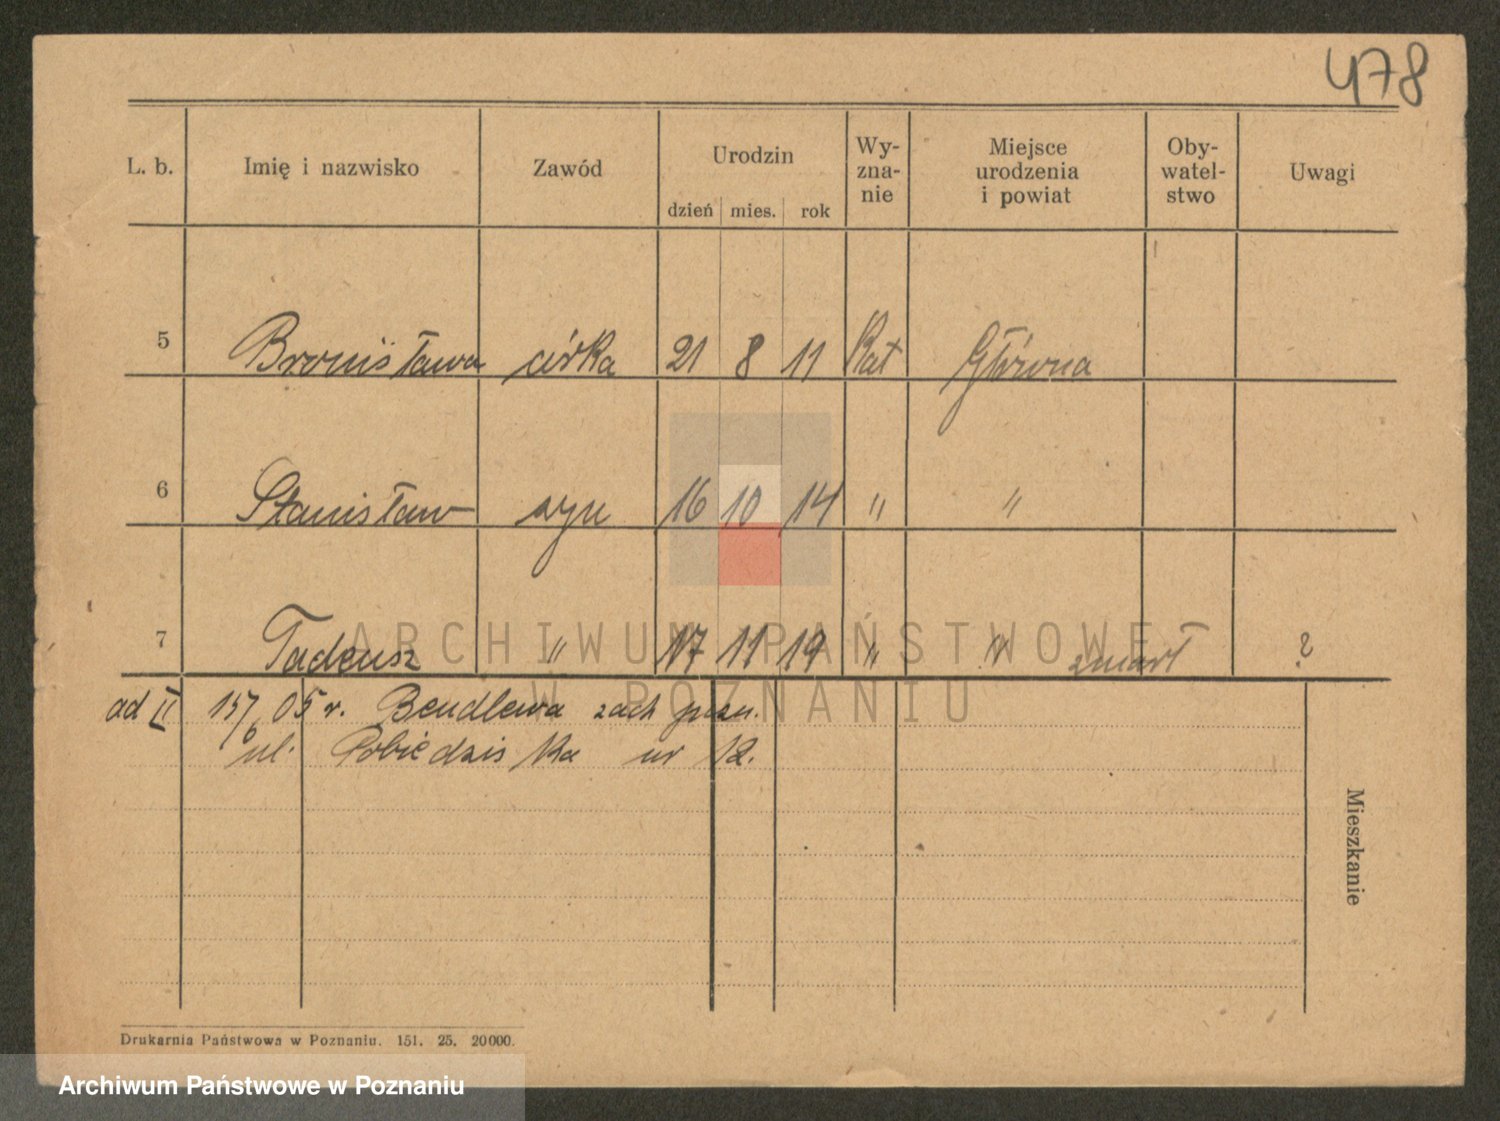 478
L. b. Imię i nazwisko Zawód Urodzin dzień mies. rok Wy- zna- nie Miejsce urodzenia i powiat Oby- watel- stwo Uwagi
5 Bronisława córka 21 8 11 Kat Główna
6 Stanisław syn 16 10 14 " "
7 Tadeusz " 17 11 19 " " zmarł ?
ARCHIWUM PAŃSTWOWE
W POZNANIU
ad II 15/6 05 r. Bendlewa zach pozn.
ul. Pobiedziska nr 12.
Mieszkanie
Drukarnia Państwowa w Poznaniu. 151. 25. 20000.
Archiwum Państwowe w Poznaniu